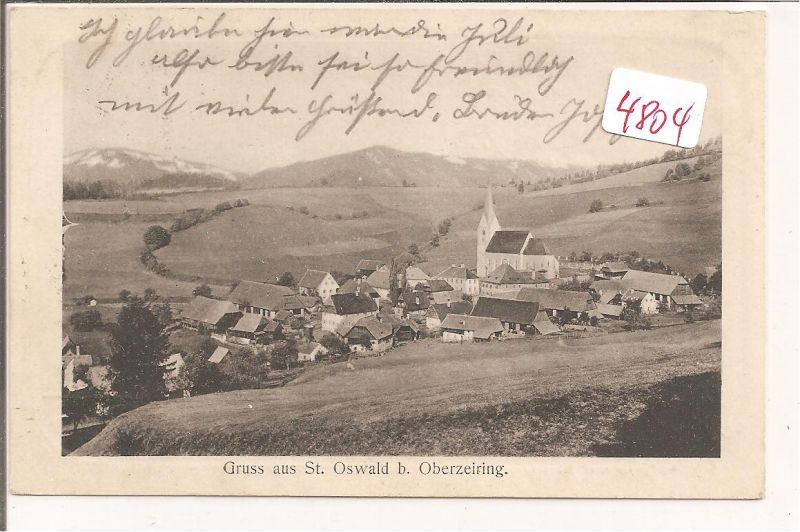 Ich glaube hier war die Juli
also bitte sei so freundlich
mit vielen Grüssen, Bruder
4804
Gruss aus St. Oswald b. Oberzeiring.